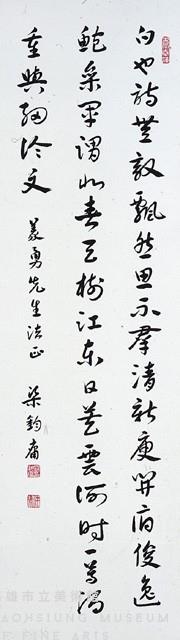 白也詩無敵飄然思不羣清新庾開府俊逸
鮑參軍渭北春天樹江東日暮雲何時一尊酒
重與細論文
義勇先生法正 梁鈞庸
高雄市立美術館
KAOHSIUNG MUSEUM
OF FINE ARTS